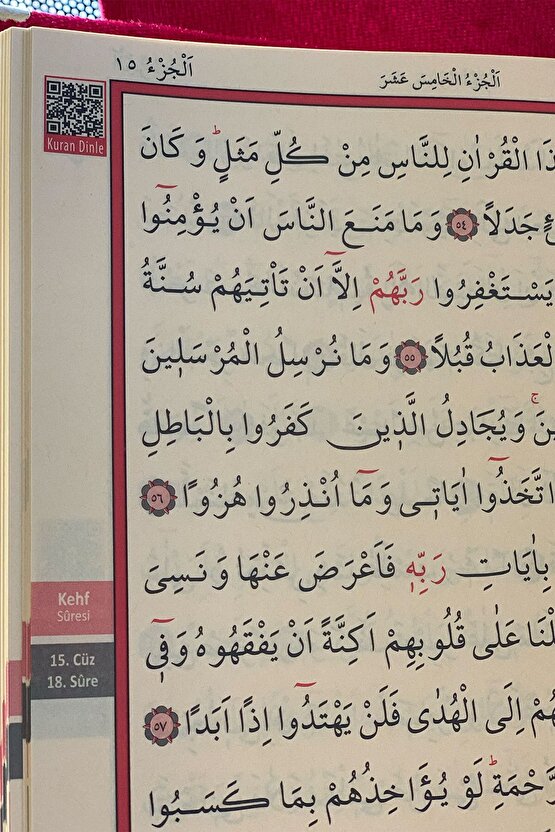 اَلْجُزْءُ الْخَامِسَ عَشَرَ
اَلْجُزْءُ ١٥
Kuran Dinle
الْقُرْاٰنِ لِلنَّاسِ مِنْ كُلِّ مَثَلٍۜ وَكَانَ
جَدَلاً ﴿٥٤﴾ وَمَا مَنَعَ النَّاسَ اَنْ يُؤْمِنُٓوا
يَسْتَغْفِرُوا رَبَّهُمْ اِلَّٓا اَنْ تَأْتِيَهُمْ سُنَّةُ
الْعَذَابُ قُبُلاً ﴿٥٥﴾ وَمَا نُرْسِلُ الْمُرْسَلٖينَ
وَيُجَادِلُ الَّذٖينَ كَفَرُوا بِالْبَاطِلِ
اتَّخَذُٓوا اٰيَاتٖى وَمَٓا اُنْذِرُوا هُزُوًا ﴿٥٦﴾
بِاٰيَاتِ رَبِّهٖ فَاَعْرَضَ عَنْهَا وَنَسِىَ
عَلٰى قُلُوبِهِمْ اَكِنَّةً اَنْ يَفْقَهُوهُ وَفٖٓى
اِلَى الْهُدٰى فَلَنْ يَهْتَدُٓوا اِذًا اَبَدًا ﴿٥٧﴾
لَوْ يُؤَاخِذُهُمْ بِمَا كَسَبُوا
Kehf
Sûresi
15. Cüz
18. Sûre